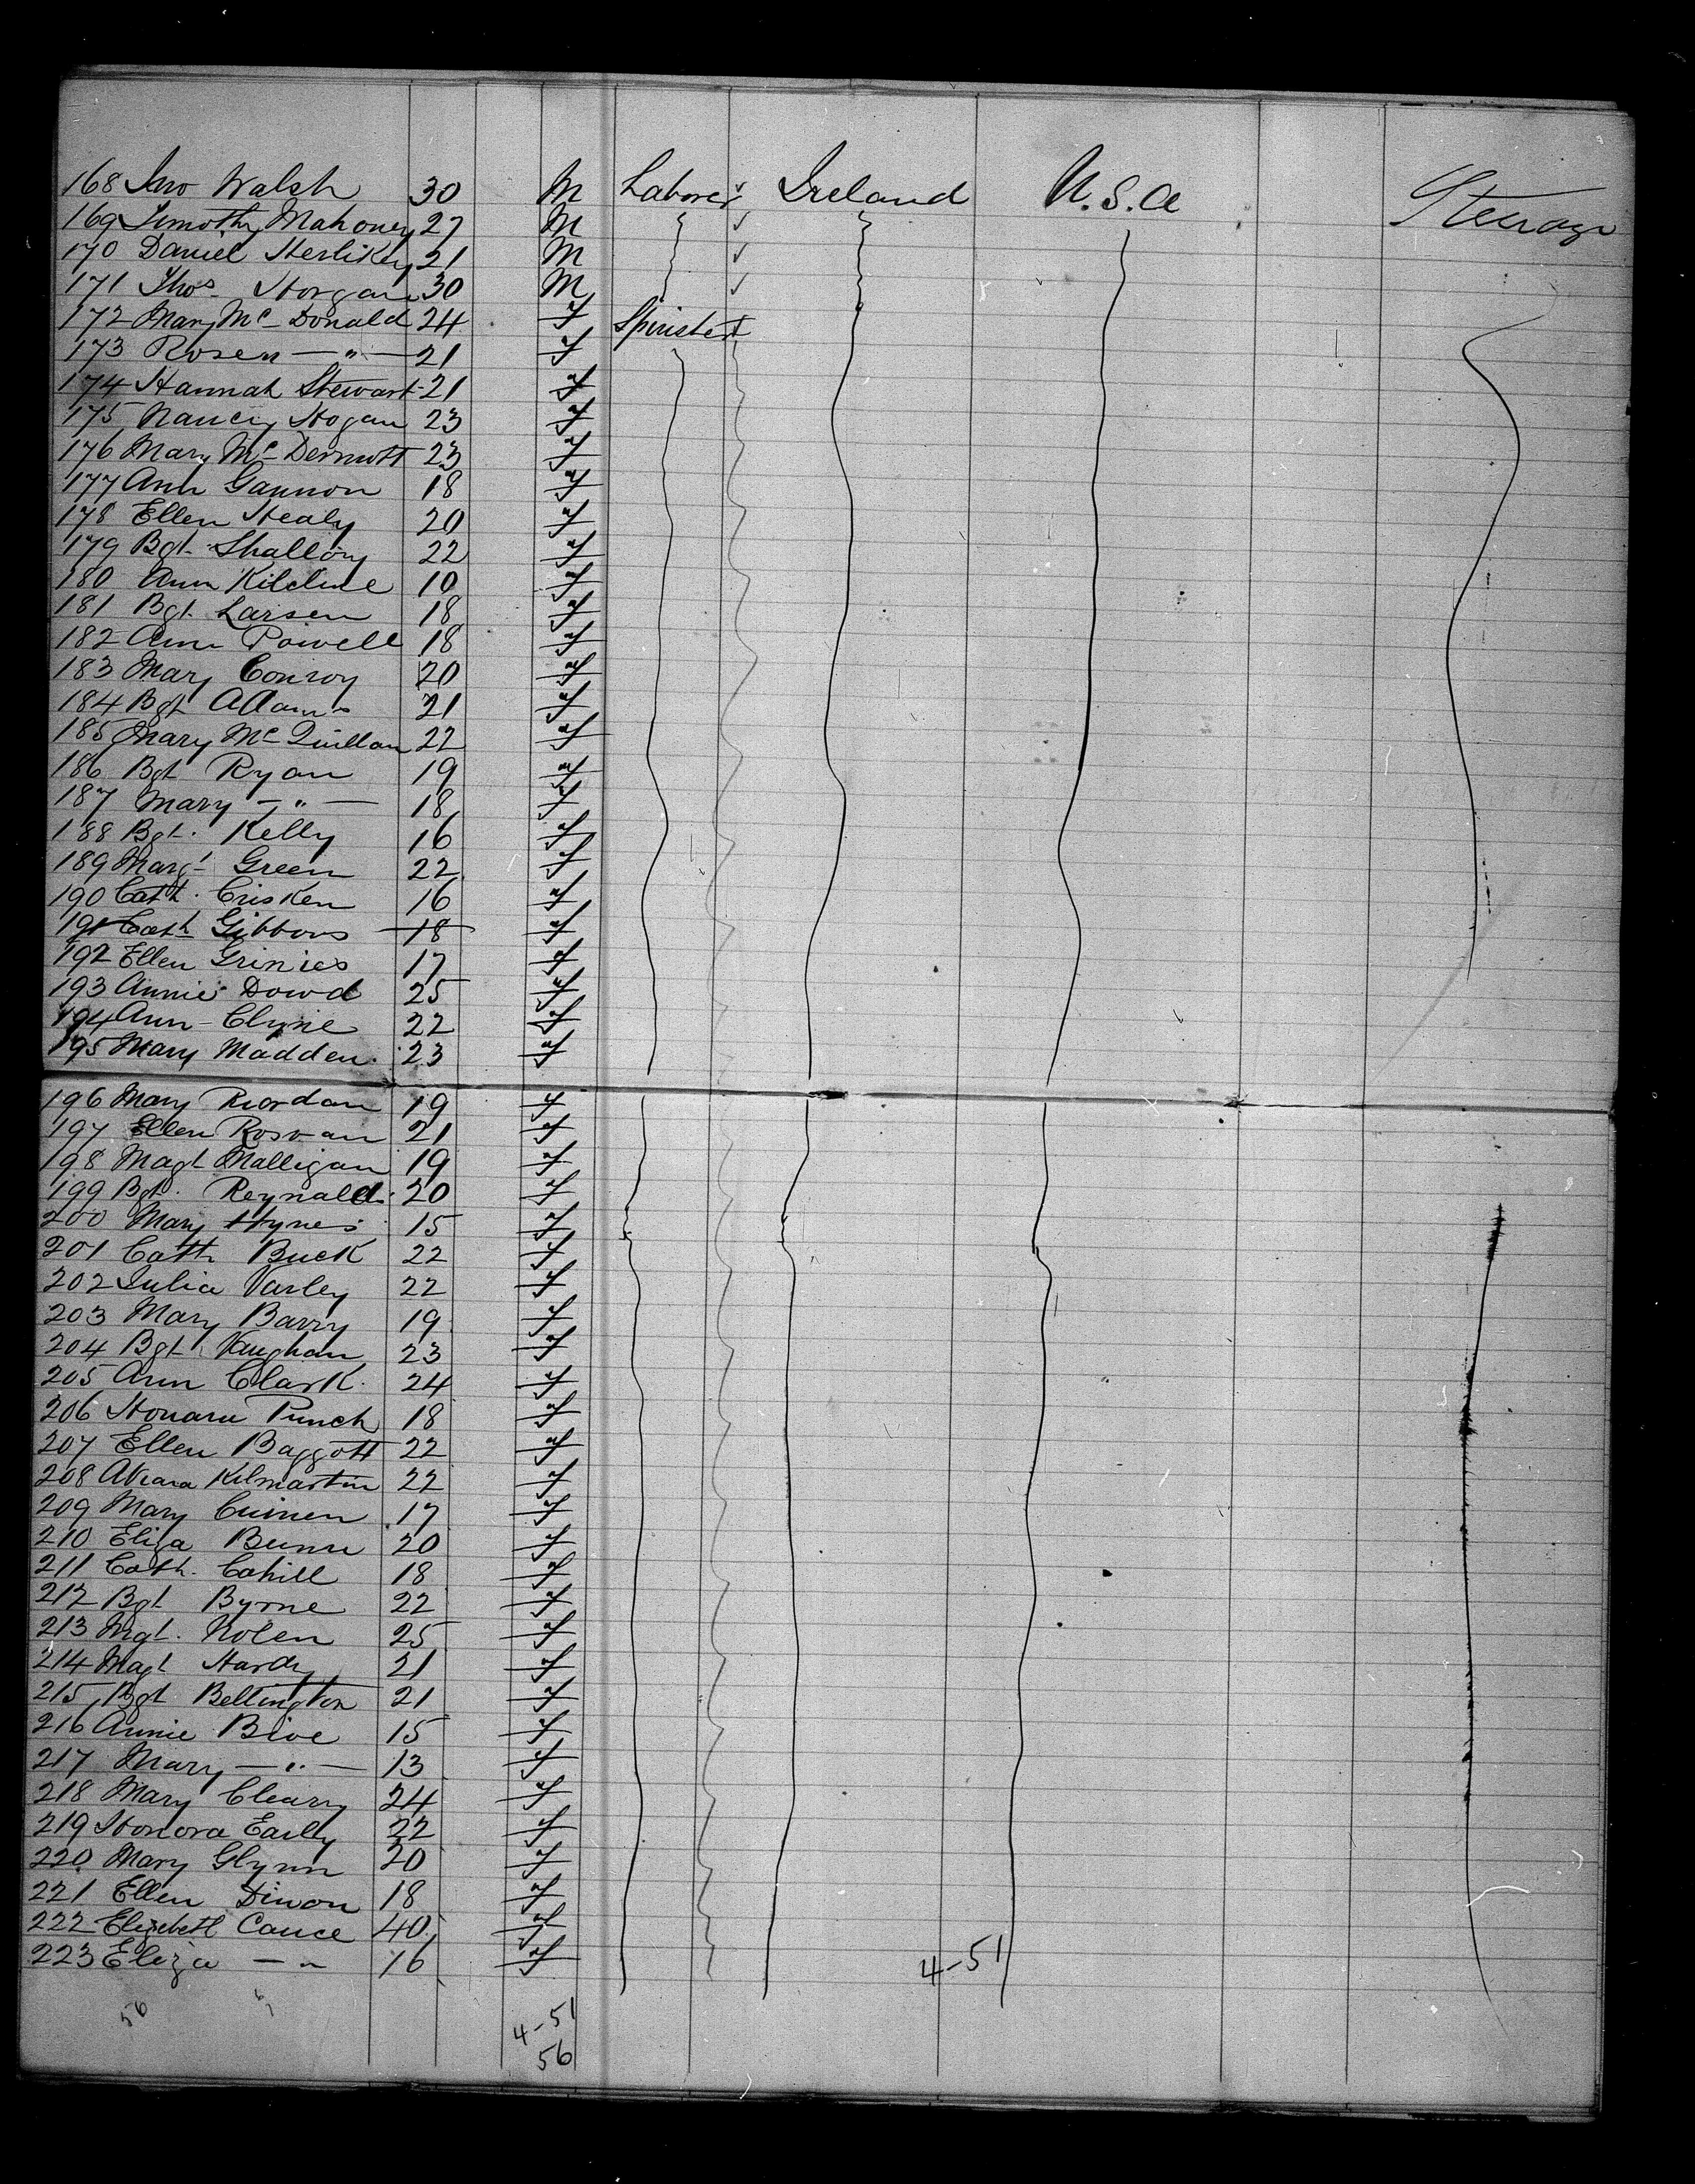 168 Jno Walsh 30 M Laborer Ireland U.S.A Steerage
169 Timothy Mahoney 27 M
170 Daniel Herlihy 21 M
171 Thos Horgan 30 M
172 Mary Mc Donald 24 f Spinster
173 Rosen — " — 21 f
174 Hannah Stewart 21 f
175 Nancy Hogan 23 f
176 Mary Mc Dermott 23 f
177 Ann Gannon 18 f
178 Ellen Healy 20 f
179 Bgt Shallory 22 f
180 Ann 10 f
181 Bgt Larsen 18 f
182 Ann Powell 18 f
183 Mary Conroy 20 f
184 Bgt Adams 21 f
185 Mary Mc Quillan 22 f
186 Bgt Ryan 19 f
187 Mary — " — 18 f
188 Bgt. Kelly 16 f
189 Margt Green 22 f
190 Cath. Crisken 16 f
191 Cath Gibbons 18 f
192 Ellen Grinies 17 f
193 Annie Dowd 25 f
194 Ann Clyne 22 f
195 Mary Madden 23 f
196 Mary Riordan 19 f
197 Ellen Rosvan 21 f
198 Magt Malligan 19 f
199 Bgt. Reynald 20 f
200 Mary Hynes 15 f
201 Cath Buck 22 f
202 Julia Varley 22 f
203 Mary Barry 19 f
204 Bgt Vaughan 23 f
205 Ann Clark 24 f
206 Honara Punch 18 f
207 Ellen Baggott 22 f
208 Kilmartin 22 f
209 Mary Cuinen 17 f
210 Eliza Bunn 20 f
211 Cath. Cahill 18 f
212 Bgt Byrne 22 f
213 Mgt. Nolen 25 f
214 Magt Hardy 21 f
215 Bgt Bellington 21 f
216 Annie Bive 15 f
217 Mary — " — 13 f
218 Mary Cleary 24 f
219 Honora Early 22 f
220 Mary Glynn 20 f
221 Ellen Dinon 18 f
222 Elizebeth Cauce 40 f
223 Eliza — " 16 f 4-51
56 4-51
56